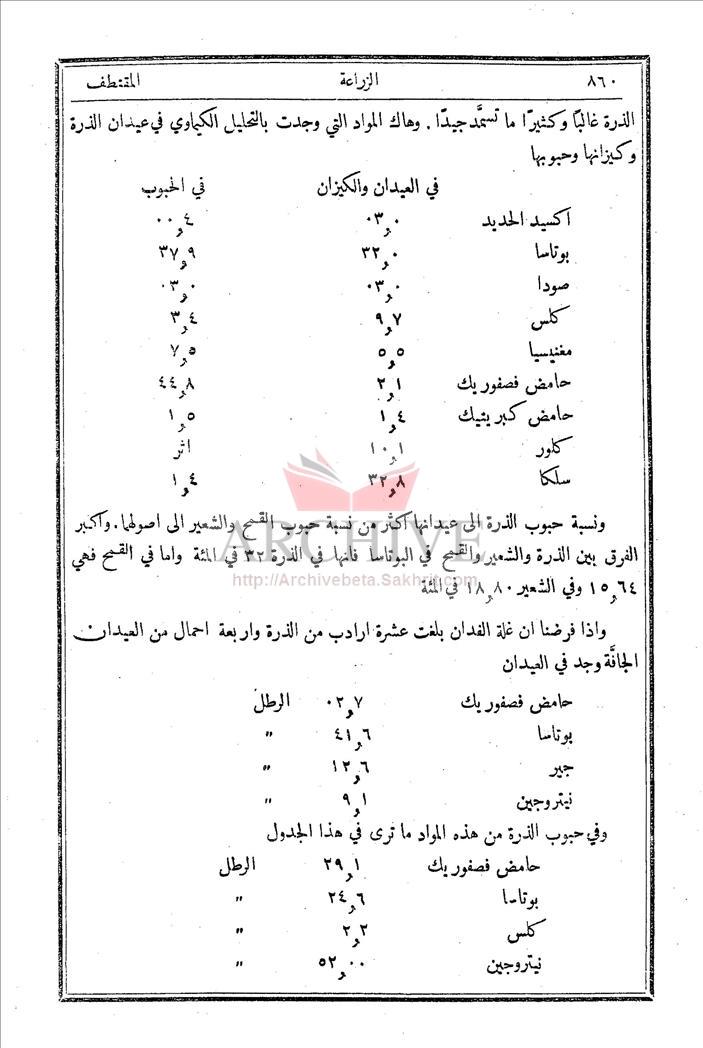 ٨٦٠ الزراعة المقتطف
الذرة غالبًا وكثيرًا ما تسمَّد جيدًا . وهاك المواد التي وجدت بالتحليل الكيماوي في عيدان الذرة
وكيزانها وحبوبها
في العيدان والكيزان في الحبوب
اكسيد الحديد ٠٣٫٠ ٠٠٫٤
بوتاسا ٣٢٫٠ ٣٧٫٩
صودا ٠٣٫٠ ٠٣٫٠
كلس ٩٫٧ ٣٫٤
مغنيسيا ٥٫٥ ٧٫٥
حامض فصفوريك ٢٫١ ٤٤٫٨
حامض كبريتيك ١٫٤ ١٫٥
كلور ١٠٫١ اثر
سلكا ٣٢٫٨ ١٫٤
ARCHIVE
ونسبة حبوب الذرة الى عيدانها اكثر من نسبة حبوب القمح والشعير الى اصولها. واكبر
الفرق بين الذرة والشعير والقمح في البوتاسا فانها في الذرة ٣٢ في المئة واما في القمح فهي
http://Archivebeta.Sakhrit.com
١٥٫٦٤ وفي الشعير ١٨٫٨٠ في المئة
واذا فرضنا ان غلة الفدان بلغت عشرة ارادب من الذرة واربعة احمال من العيدان
الجافَّة وجد في العيدان
حامض فصفوريك ٠٢٫٧ الرطل
بوتاسا ٤١٫٦ "
جير ١٢٫٦ "
نيتروجين ٩٫١ "
وفي حبوب الذرة من هذه المواد ما ترى في هذا الجدول
حامض فصفوريك ٢٩٫١ الرطل
بوتاسا ٢٤٫٦ "
كلس ٢٫٢ "
نيتروجين ٥٢٫٠٠ "